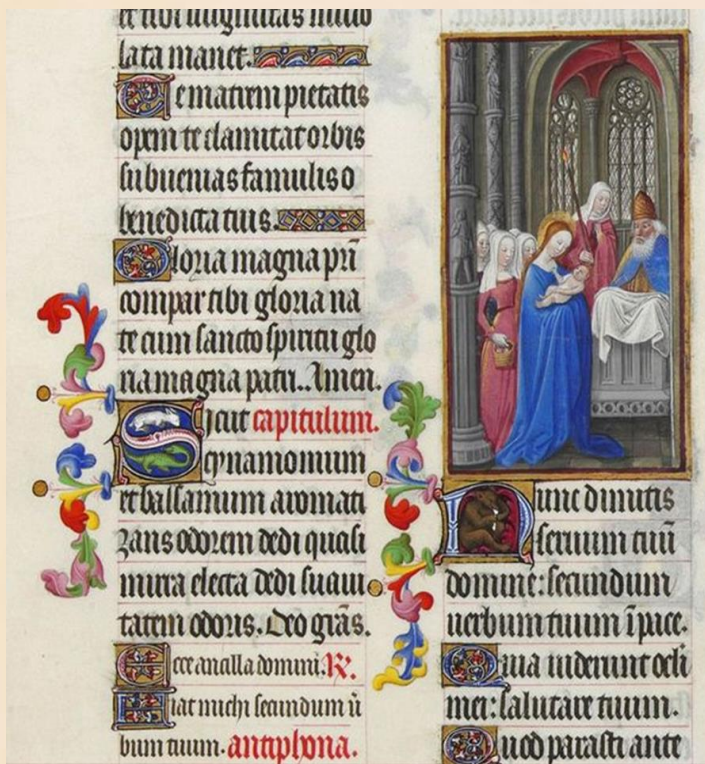 et tibi uirginitas inuio
lata manet.
Te matrem pietatis
opem te clamitat orbis
subuenias famulis o
benedicta tuis.
Gloria magna pr̄i
compar tibi gloria na
te cum sancto spiritu glo
ria magna patri. Amen.
Sicut capitulum.
cynamomum
et balsamum aromati
zans odorem dedi quasi
mirra electa dedi suaui
tatem odoris. Deo grās.
Ecce ancilla domini. R̷.
Fiat michi secundum ū
bum tuum. antiphona.
Nunc dimitis
seruum tuū
domine: secundum
uerbum tuum ī pace.
Quia uiderunt oculi
mei: salutare tuum.
Quod parasti ante